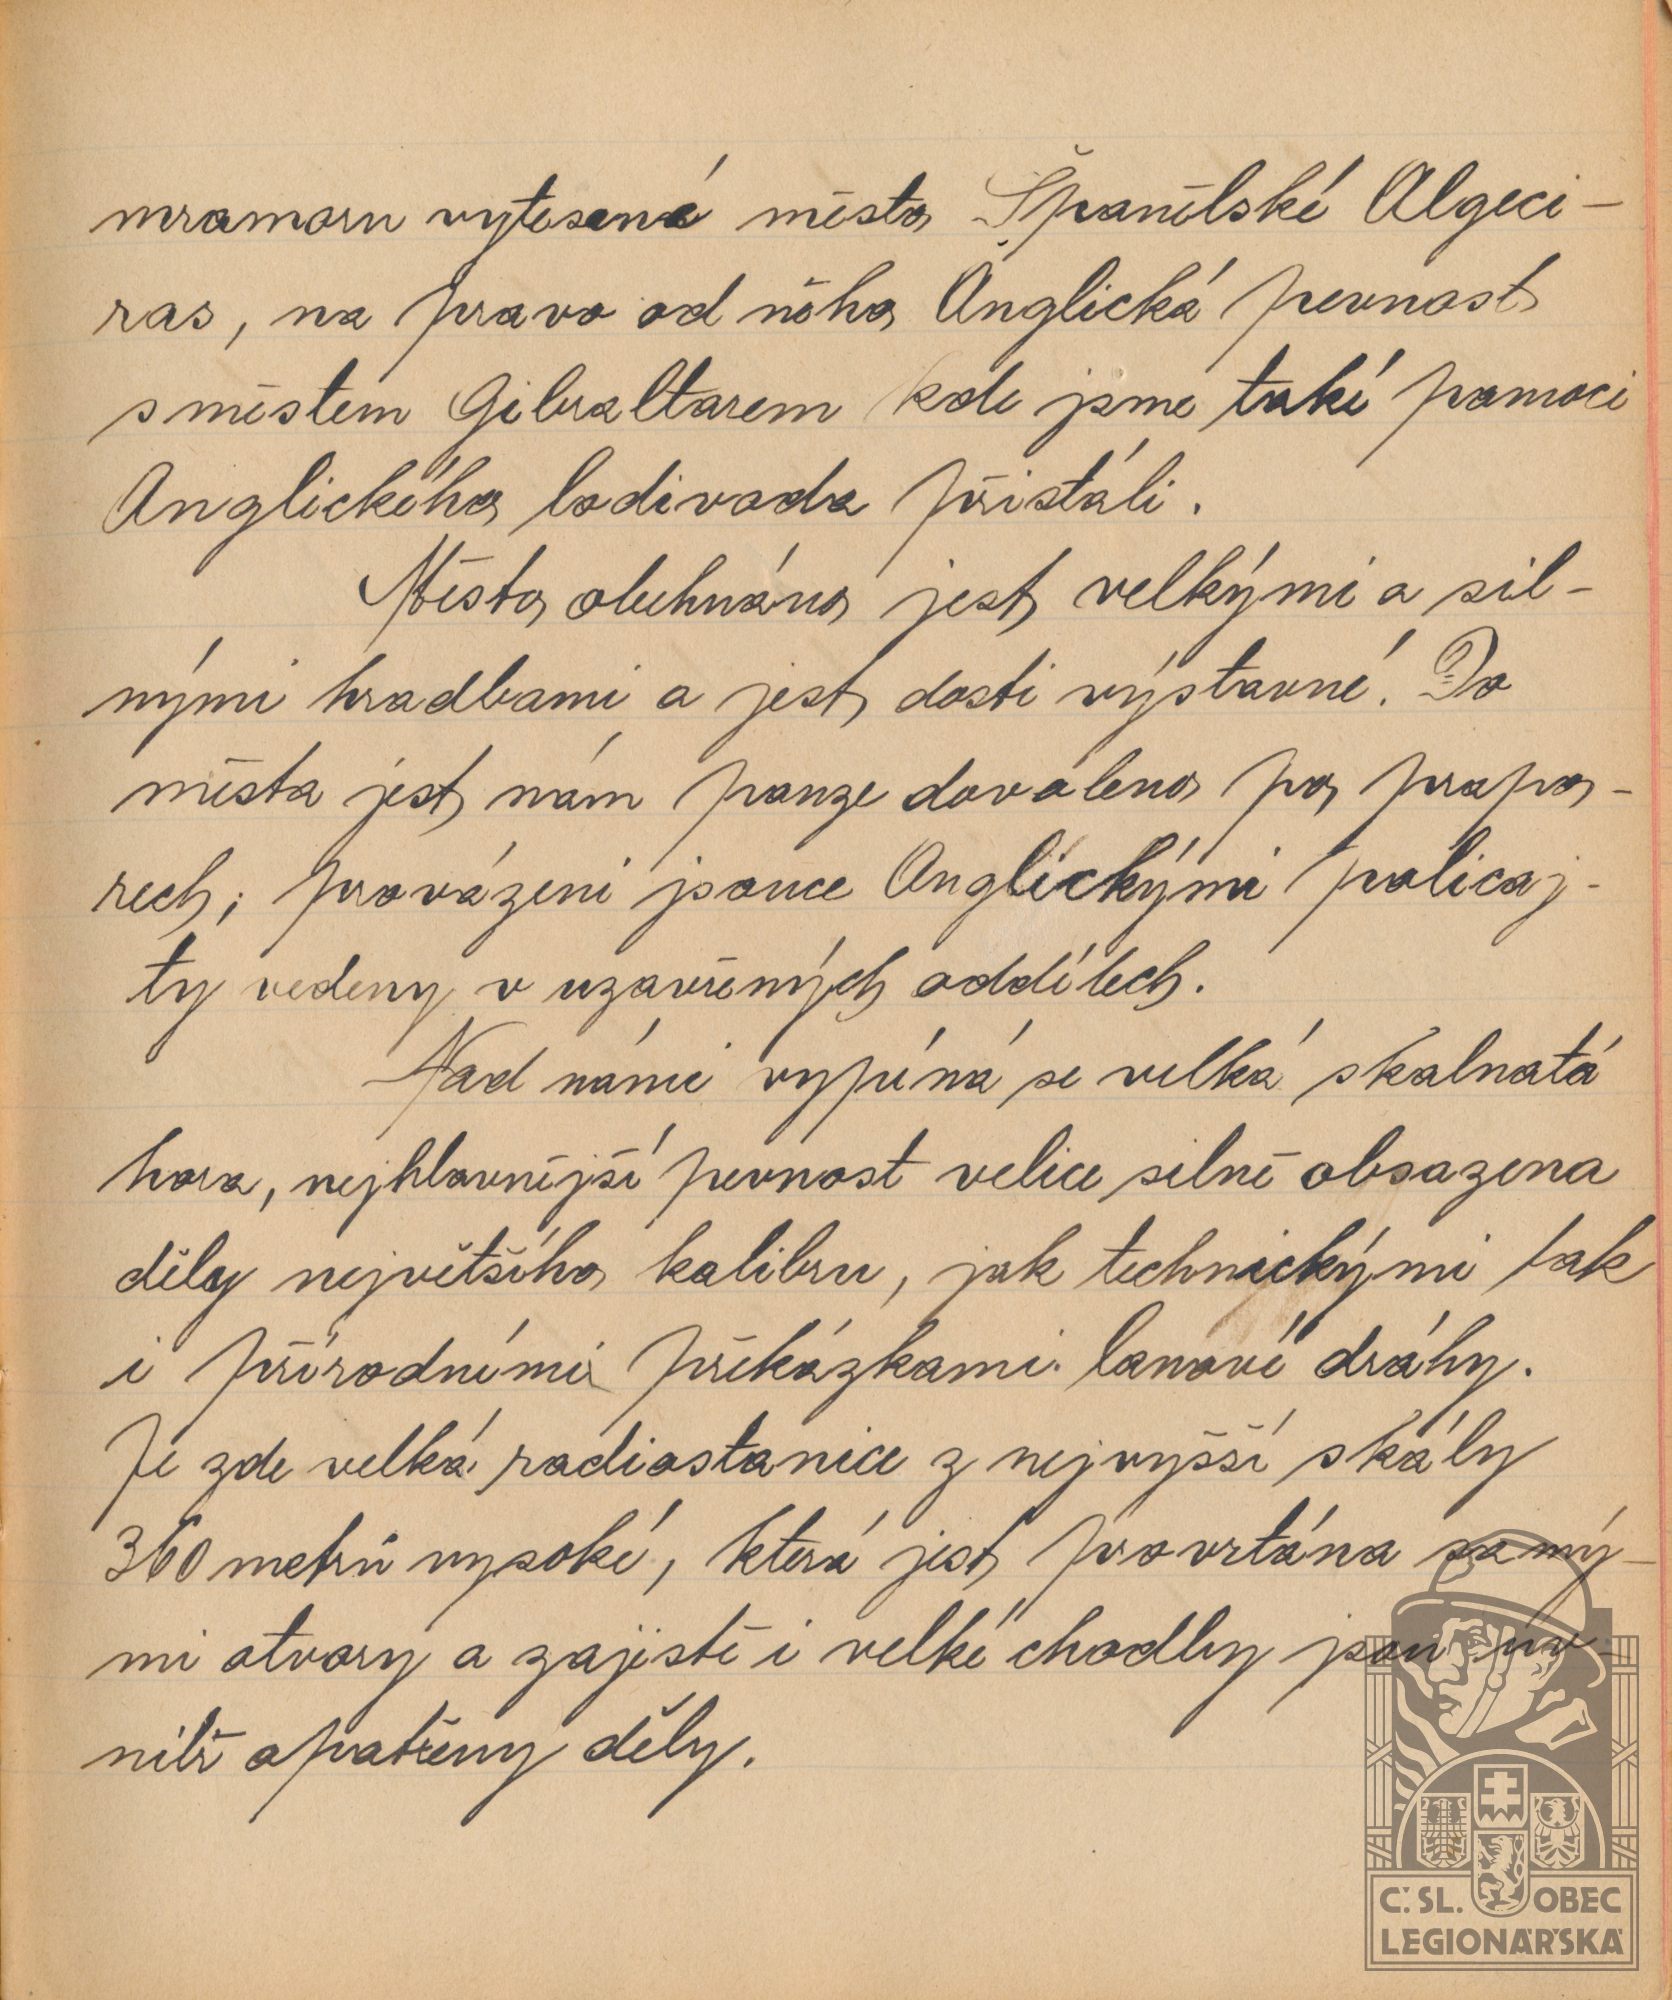 mramoru vytesané město Španělské Algeci-
ras, na pravo od něho Anglická pevnost
s městem Gibraltarem kde jsme také pomocí
Anglického lodivoda přistáli.
Město obehnáno jest velkými a sil-
nými hradbami a jest dosti výstavné. Do
města jest nám pouze dovoleno po prapo-
rech, provázeni jsouce Anglickými policaj-
ty vedeny v uzavřených oddílech.
Nad námi vypíná se velká skalnatá
hora, nejhlavnější pevnost velice silně obsazena
děly největšího kalibru, jak technickými tak
i přírodními překážkami. lanové dráhy.
Je zde velká radiostanice z nejvyšší skály
360 metrů vysoké, která jest provrtána samý-
mi otvory a zajistě i velké chodby jsou uv-
nitř opatřeny děly.
Č. SL. OBEC
LEGIONÁŘSKÁ